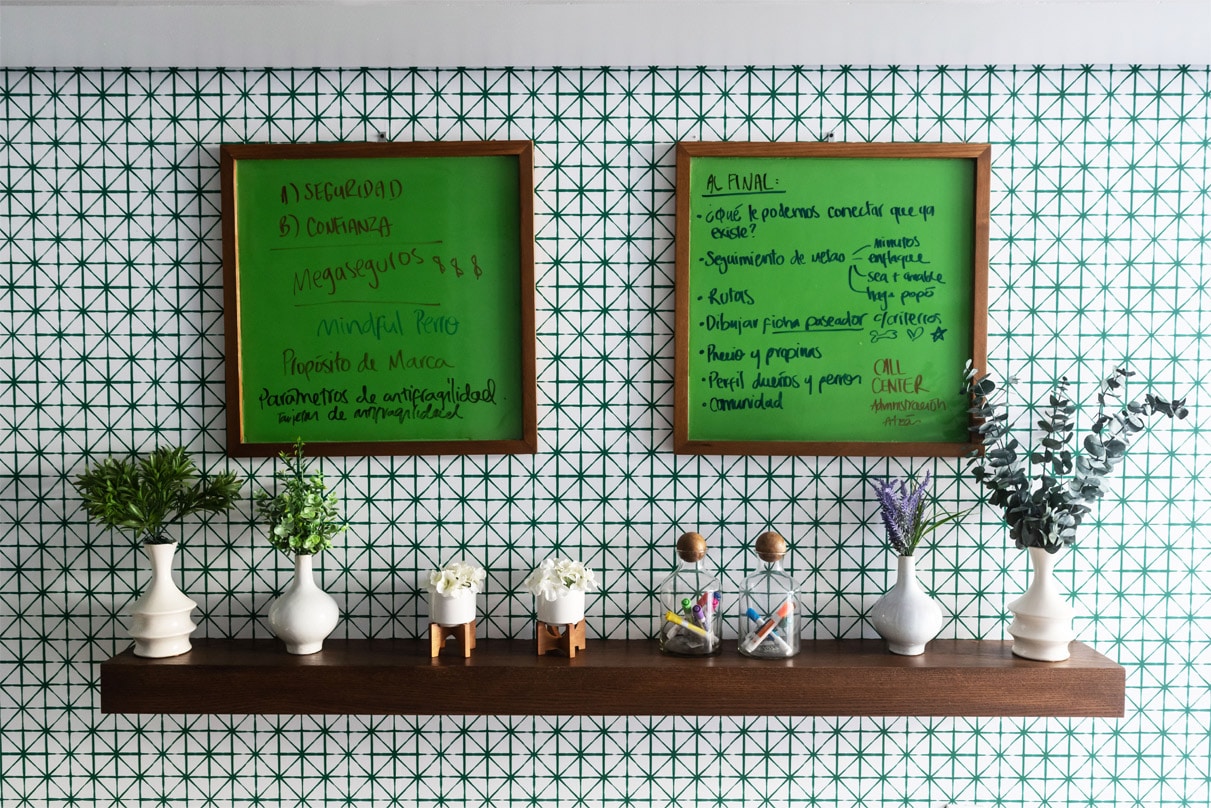 A) SEGURIDAD
B) CONFIANZA
Megaseguros $ $ $
Mindful Perro
Propósito de Marca
Parámetros de antifragilidad.
Tarjetas de antifragilidad
AL FINAL:
• ¿Qué le podemos conectar que ya
existe?
• Seguimiento de
minutos
enfoque
sea + amable
haga popó
• Rutas
• Dibujar ficha paseador c/criterios
• Precio y propinas
• Perfil dueños y perros
• Comunidad
CALL
CENTER
Administración